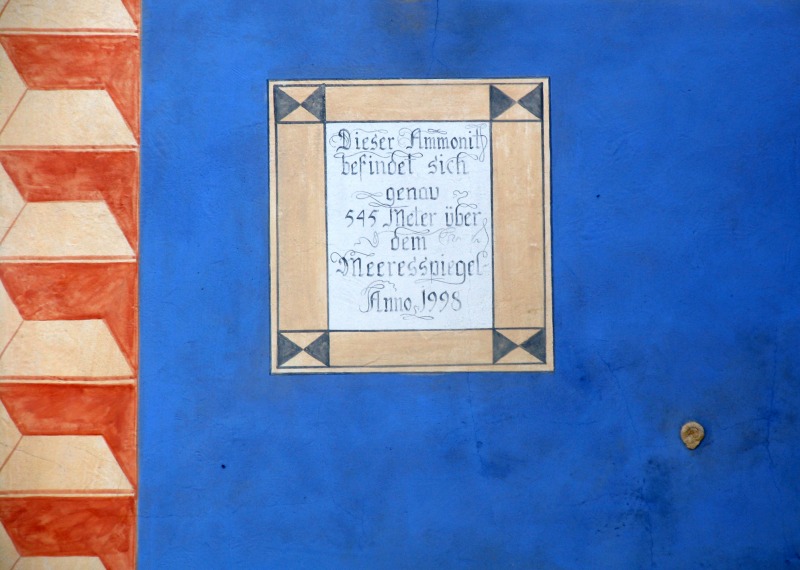 Dieser Ammonith
befindet sich
genau
545 Meter über
dem
Meeresspiegel-
Anno 1998